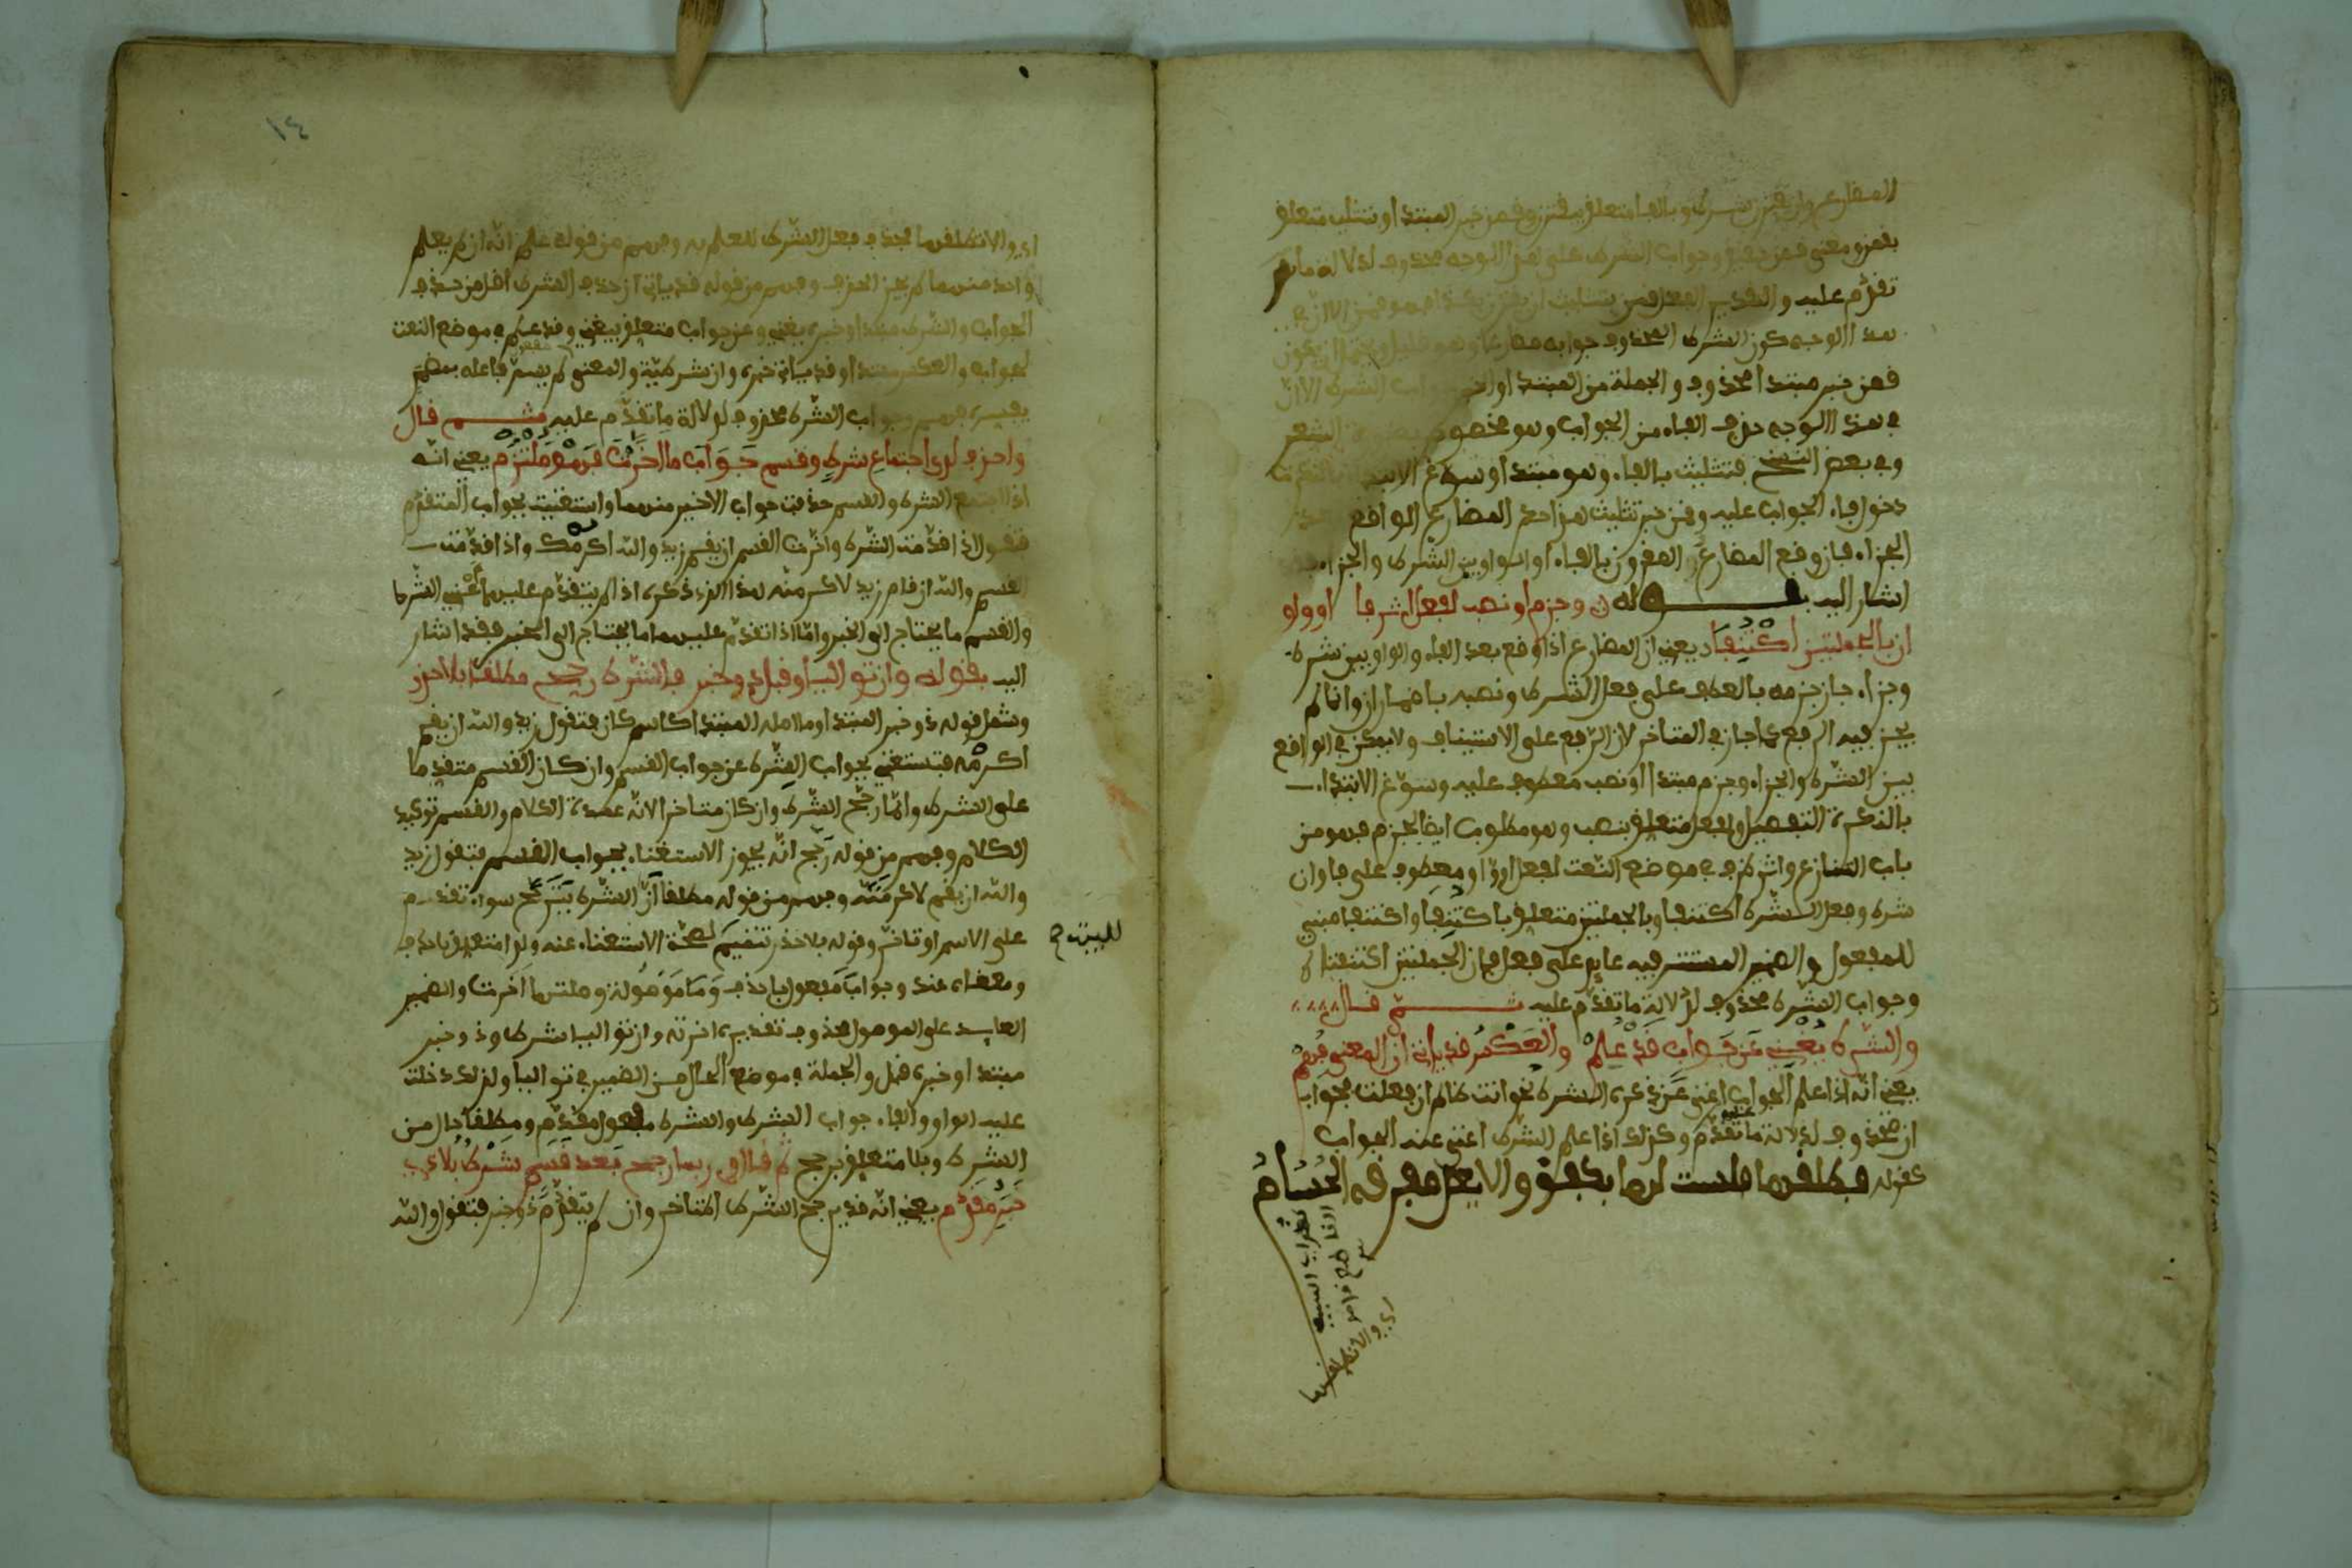 المضارع ان يقترن بشرط وبالفا متعلق بيقترن وقمن خبر المبتدا وبتثليث متعلق
بقمن ومعنى قمن حقيق وجواب الشرط على هذا الوجه محذوف لدلالة ما
تقدم عليه والتقدير الفعل قمن بتثليث ان يقترن بكذا فهو قمن الا ان في
هذا الوجه كون الشرط المحذوف جوابه مضارعا وهو قليل ويحتمل ان يكون
قمن خبر مبتدا محذوف والجملة من المبتدا والخبر جواب الشرط الا ان
في هذا الوجه حذف الفاء من الجواب وهو مخصوص بضرورة الشعر
وفي بعض النسخ فتثليث بالفاء وهو مبتدا وسوغ الابتدا بالنكرة
دخول فاء الجواب عليه وقمن خبر تثليث هذا حكم المضارع الواقع بعد
الجزاء فان وقع المضارع المقرون بالفاء او الواو بين الشرط والجزاء فقد
اشار اليه بقوله وجزم او نصب لفعل اثر فا او واو
ان بالجملتين اكتنفا يعني ان المضارع اذا وقع بعد الفاء والواو بين شرط
وجزاء جاز جزمه بالعطف على فعل الشرط ونصبه باضمار ان وانما لم
يجز فيه الرفع كما جاز في المتاخر لان الرفع على الاستيناف ولا يمكن في الواقع
بين الشرط والجزاء وجزم مبتدا او نصب معطوف عليه وسوغ الابتداء
بالنكرة التفصيل ولفعل متعلق بنصب وهو مطلوب ايضا لجزم فهو من
باب التنازع واثر ظرف في موضع النعت لفعل او واو معطوف على فا وان
شرط وفعل الشرط اكتنفا وبالجملتين متعلق باكتنفا واكتنفا مبني
للمفعول والضمير المستتر فيه عايد على فعل فان الجملتين اكتنفتاه
وجواب الشرط محذوف لدلالة ما تقدم عليه ثم قال
والشرط يغني عن جواب قد علم والعكس قد ياتي ان المعنى فهم
يعني انه اذا علم الجواب اغنى عن ذكره الشرط نحو انت ظالم ان فعلت فجواب
ان محذوف لدلالة ما تقدم عليه وكذلك اذا علم الشرط اغنى عنه الجواب
كقوله فطلقها فلست لها بكفو والا يعل مفرقك الحسام
اي والا تطلقها
اي والا تطلقها فحذف فعل الشرط للعلم به وفهم من قوله علم انه ان لم يعلم
واحد منهما لم يجز الحذف وفهم من قوله قد ياتي ان حذف الشرط اقل من حذف
الجواب والشرط مبتدا وخبره يغني وعن جواب متعلق بيغني وقد علم في موضع النعت
لجواب والعكس مبتدا وقد ياتي خبره وان شرطية والمعنى مفعول لم يسم فاعله بفعل مضمر
يفسره فهم وجواب الشرط محذوف لدلالة ما تقدم عليه ثم قال
واحذف لدى اجتماع شرط وقسم جواب ما اخرت فهو ملتزم يعني انه
اذا اجتمع الشرط والقسم حذفت جواب الاخير منهما واستغنيت بجواب المتقدم
فتقول اذا قدمت الشرط واخرت القسم ان يقم زيد والله اكرمك واذا قدمت
القسم والله ان قام زيد لاكرمنه هذا الذي ذكره اذا لم يتقدم عليهما اعني الشرط
والقسم ما يحتاج الى الخبر واما اذا تقدم عليهما ما يحتاج الى الخبر فقد اشار
اليه بقوله وان تواليا وقبل ذو خبر فالشرط رجح مطلقا بلا حذر
وشمل قوله ذو خبر المبتدا وما اصله المبتدا كاسم كان فتقول زيد والله ان يقم
اكرمه فتستغني بجواب الشرط عن جواب القسم وان كان القسم متقدما
على الشرط وانما رجح الشرط وان كان متاخرا لانه عمدة الكلام والقسم توكيد
الكلام وفهم من قوله رجح انه يجوز الاستغناء بجواب القسم فتقول زيد
والله ان يقم لاكرمنه وفهم من قوله مطلقا ان الشرط يترجح سواء تقدم
على الاسم او تاخر وقوله بلا حذر تتميم لصحة الاستغناء عنه ولدى متعلق باحذف
للبيت صح
ومعناه عند وجواب مفعول باحذف وما موصولة وصلتها اخرت والضمير
العايد على الموصول محذوف تقديره اخرته وان تواليا شرط وذو خبر
مبتدا وخبره قبل والجملة في موضع الحال من الضمير في تواليا ولذلك دخلت
عليه الواو والفاء جواب الشرط والشرط مفعول مقدم ومطلقا حال من
الشرط وبلا متعلق برجح ثم قال وربما رجح بعد قسم شرط بلا ذي
خبر مقدم يعني انه قد يرجح الشرط المتاخر وان لم يتقدم ذو خبر فتقول والله
١٤